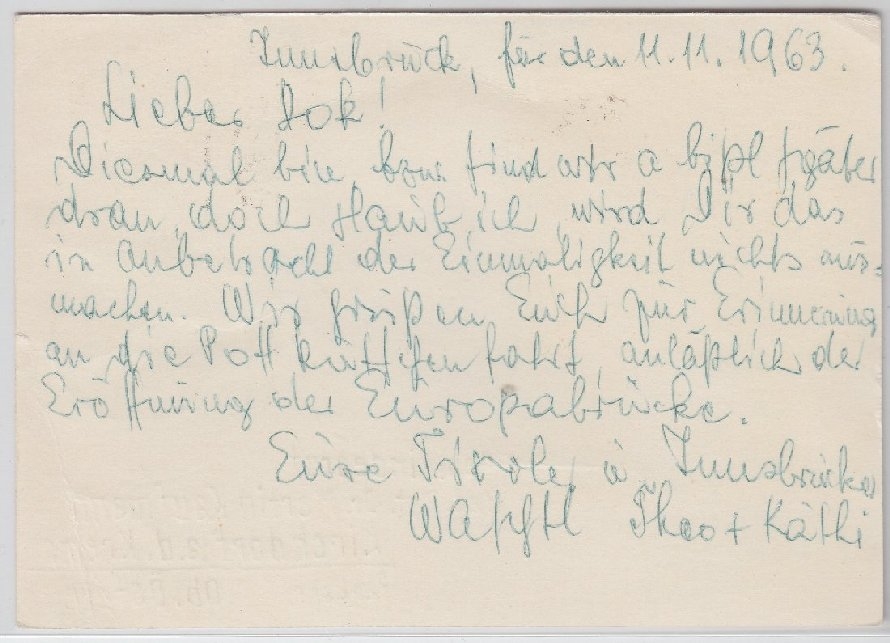 Innsbruck, für den 11.11.1963.
Lieber Dok!
Diesmal bin bzw. sind wir a bißl später
dran, doch glaub ich, wird Dir das
in Anbetracht der Einmaligkeit nichts aus-
machen. Wir grüßen Euch zur Erinnerung
an die Postkutschenfahrt anläßlich der
Eröffnung der Europabrücke.
Eure Tiroler u. Innsbrucker
Theo + Käthi